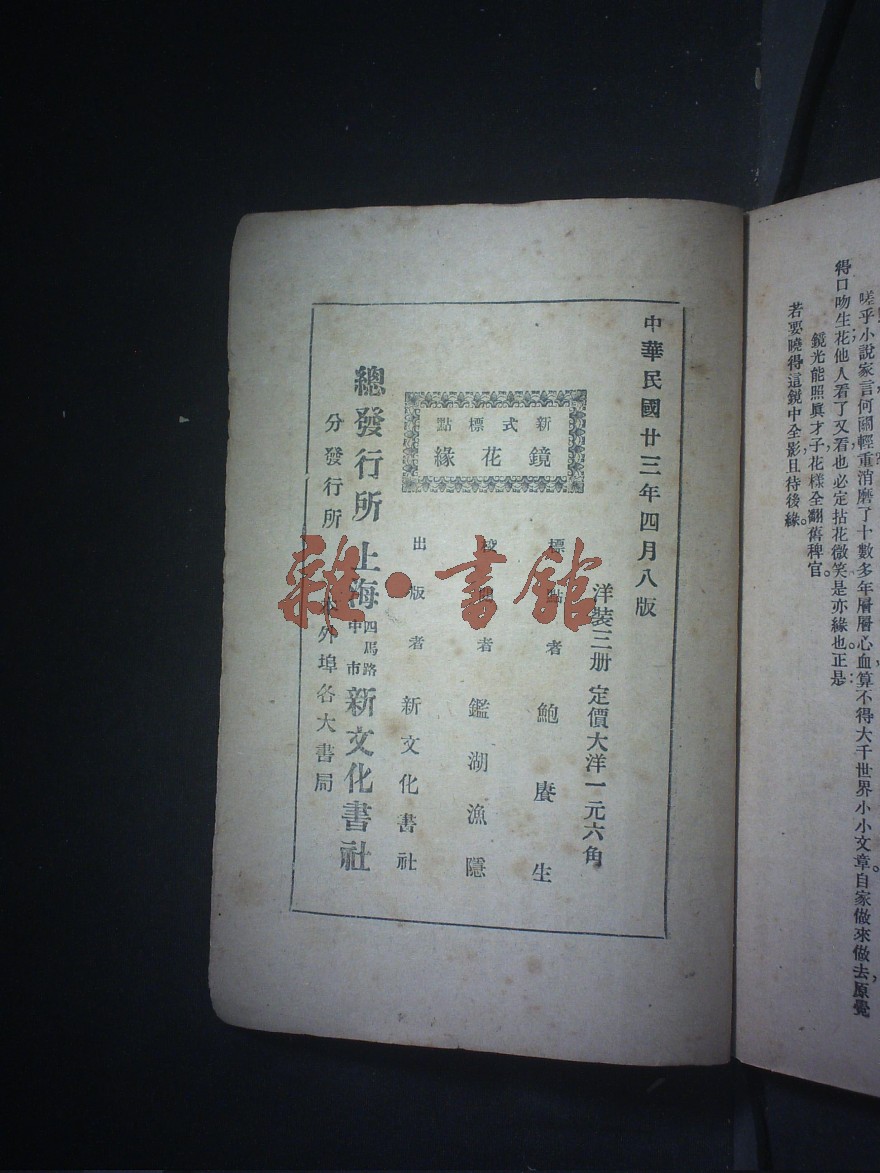 嗟乎小說家言何關輕重消磨了十數多年層層心血算不得大千世界小小文章。自家做來做去，原覺
得口吻生花；他人看了又看，也必定拈花微笑：是亦緣也。正是：
鏡光能照眞才子，花樣全翻舊稗官。
若要曉得這鏡中全影，且待後緣。
中華民國廿三年四月八版
洋裝三册 定價大洋一元六角
新式標點
鏡花緣
標點者 鮑賡生
校閱者 鑑湖漁隱
出版者 新文化書社
總發行所 上海四馬路中市 新文化書社
分發行所 本外埠各大書局
雜·書館